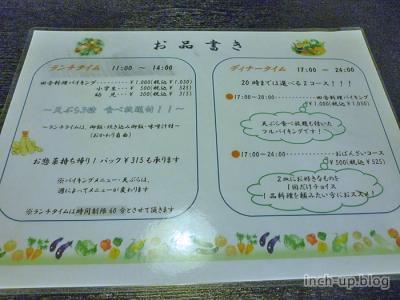 お品書き
ランチタイム 11:00 ～ 14:00
田舎料理バイキング・・・・・・・・・・¥1,000(税込¥1,050)
小学生・・・¥ 500(税込¥ 525)
幼 児・・・¥ 300(税込¥ 315)
～天ぷら3種 食べ放題付！！～
～ランチタイムは、御飯・炊き込み御飯・味噌汁付～
(おかわり自由)
お惣菜持ち帰り1パック¥315も承ります
※バイキングメニュー・天ぷらは、
週によってメニューが変わります
※ランチタイムは時間制限60分とさせて頂きます
ディナータイム 17:00 ～ 24:00
20時までは選べる2コース！！！
17:00～20:00・・・・・・・・・田舎料理バイキング
¥1,000(税込¥1,050)
天ぷら食べ放題も付いた
フルバイキングです！
17:00～24:00・・・・・・・・・おばんざいコース
¥500(税込¥525)
2皿にお好きなものを
1回だけチョイス
1品料理を頼みたい方におススメ！
inch-up.blog